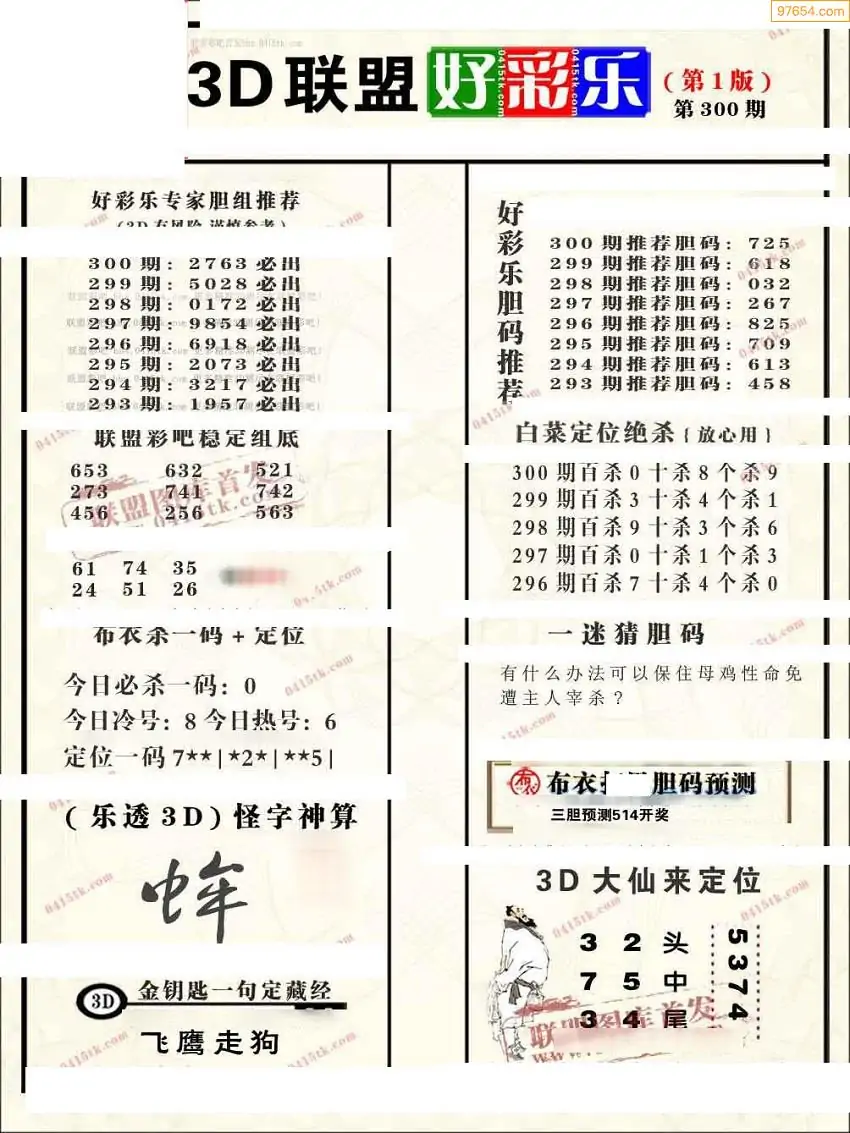 97654.com
3D联盟好彩乐
(第1版)
第300期
好彩乐专家胆组推荐
(3D有风险 谨慎参考)
300期: 2763必出
299期: 5028必出
298期: 0172必出
297期: 9854必出
296期: 6918必出
295期: 2073必出
294期: 3217必出
293期: 1957必出
联盟彩吧稳定组底
653 632 521
273 741 742
456 256 563
联盟图库首发
61 74 35
24 51 26
布衣杀一码+定位
今日必杀一码: 0
今日冷号: 8 今日热号: 6
定位一码7**|*2*|**5|
(乐透3D)怪字神算
3D
金钥匙一句定藏经
飞鹰走狗
好彩乐胆码推荐
300期推荐胆码: 725
299期推荐胆码: 618
298期推荐胆码: 032
297期推荐胆码: 267
296期推荐胆码: 825
295期推荐胆码: 709
294期推荐胆码: 613
293期推荐胆码: 458
白菜定位绝杀{放心用}
300期百杀0十杀8个杀9
299期百杀3十杀4个杀1
298期百杀9十杀3个杀6
297期百杀0十杀1个杀3
296期百杀7十杀4个杀0
一迷猜胆码
有什么办法可以保住母鸡性命免
遭主人宰杀?
布衣 胆码预测
三胆预测514开奖
3D大仙来定位
3 2 头
7 5 中
3 4 尾
5374
联盟图库首发
0415tk.com